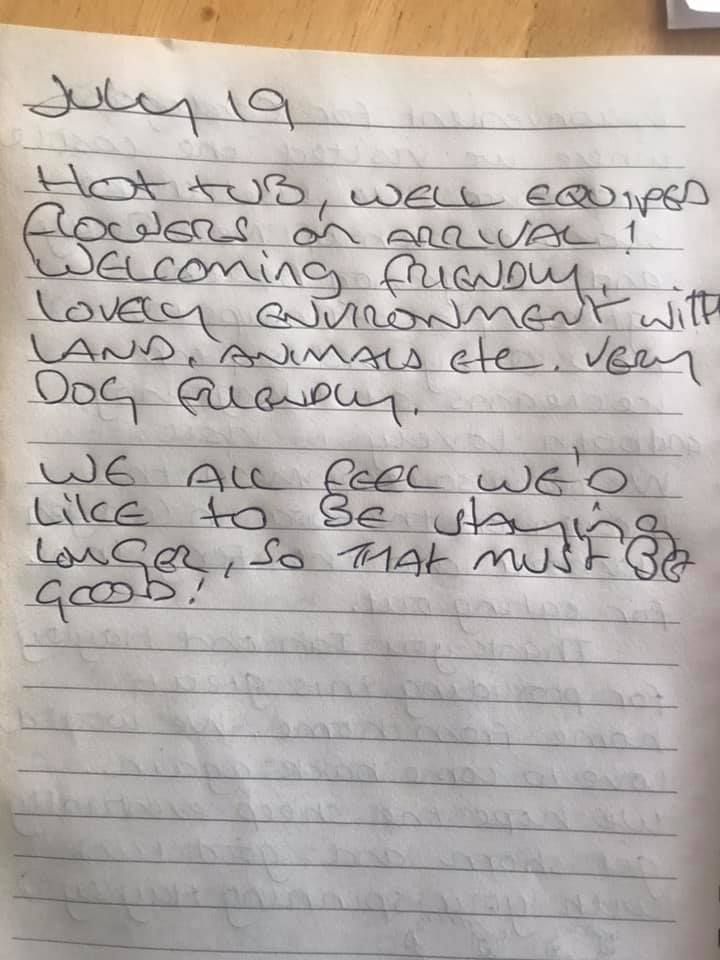 July 19
Hot tub, well equiped
flowers on arrival!
Welcoming friendly,
Lovely environment with
Land, animals etc. Very
Dog friendly.
We all feel we'd
like to be staying
longer, so that must be
good!